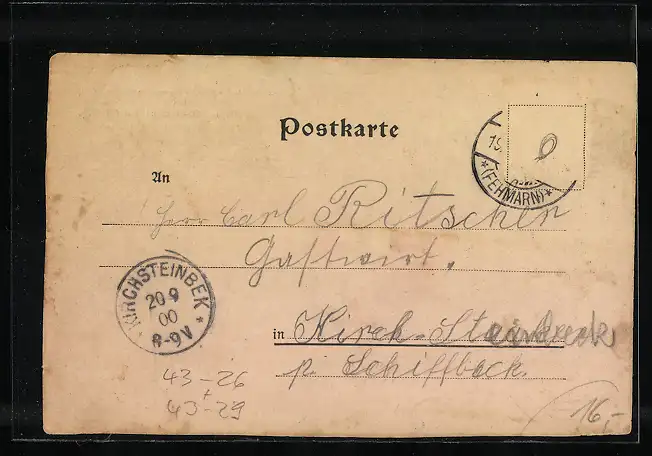 Postkarte
19.
(FEHMARN)
An
Herr Carl Ritscher
Gastwirt.
KIRCHSTEINBEK
20 9
00
8-9V
in Kirch-Steinbeck
p. Schiffbeck.
43-26
43-29
16,-